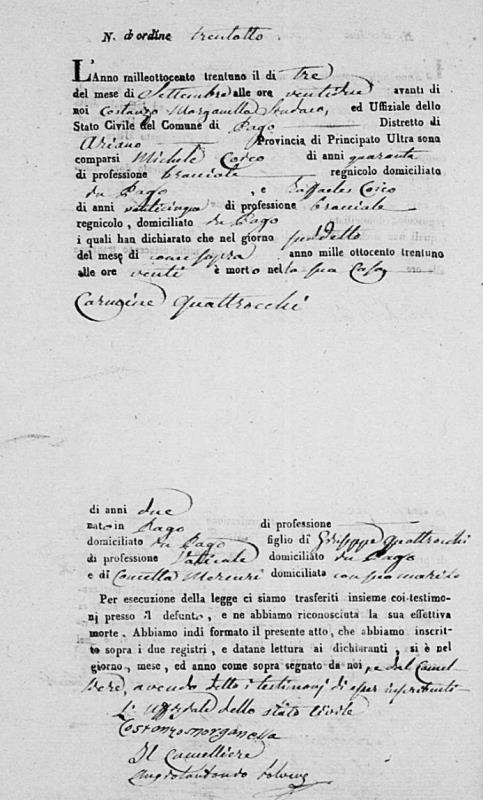 N. d'ordine trentotto
L'Anno milleottocento trentuno il di tre
del mese di Settembre alle ore ventidue avanti di
noi Costanzo Morganella Sindaco, ed Uffiziale dello
Stato Civile del Comune di Pago Distretto di
Ariano Provincia di Principato Ultra sono
comparsi Michele Cosco di anni quaranta
di professione bracciale regnicolo domiciliato
in Pago , e Raffaele Cosco
di anni venticinque di professione bracciale
regnicolo, domiciliato in Pago
i quali han dichiarato che nel giorno sudetto
del mese di come sopra anno mille ottocento trentuno
alle ore venti è morto nella sua Casa
Carmine Quattrocchi
di anni due
nato in Pago di professione
domiciliato in Pago figlio di Giuseppe Quattrocchi
di professione domiciliato in Pago
e di Mercuri domiciliata con suo marito
Per esecuzione della legge ci siamo trasferiti insieme coi testimo-
nj presso il defunto, e ne abbiamo riconosciuta la sua effettiva
morte. Abbiamo indi formato il presente atto, che abbiamo inscrit-
to sopra i due registri, e datane lettura ai dichiaranti, si è nel
giorno, mese, ed anno come sopra segnato da noi, e dal Cancel
liere, avendo detto i testimonj di esser
L'Uffiziale dello stato Civile
Costanzo Morganella
Il Cancelliere